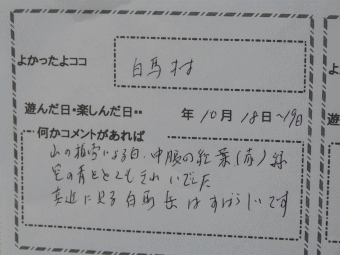 よかったよココ 白馬村
遊んだ日・楽しんだ日・・ 年 10月 18日～19日
何かコメントがあれば
山の積雪による白、中腹の紅葉(赤) 緑
空の青ととてもきれいでした
真近に見る白馬岳はすばらしいです